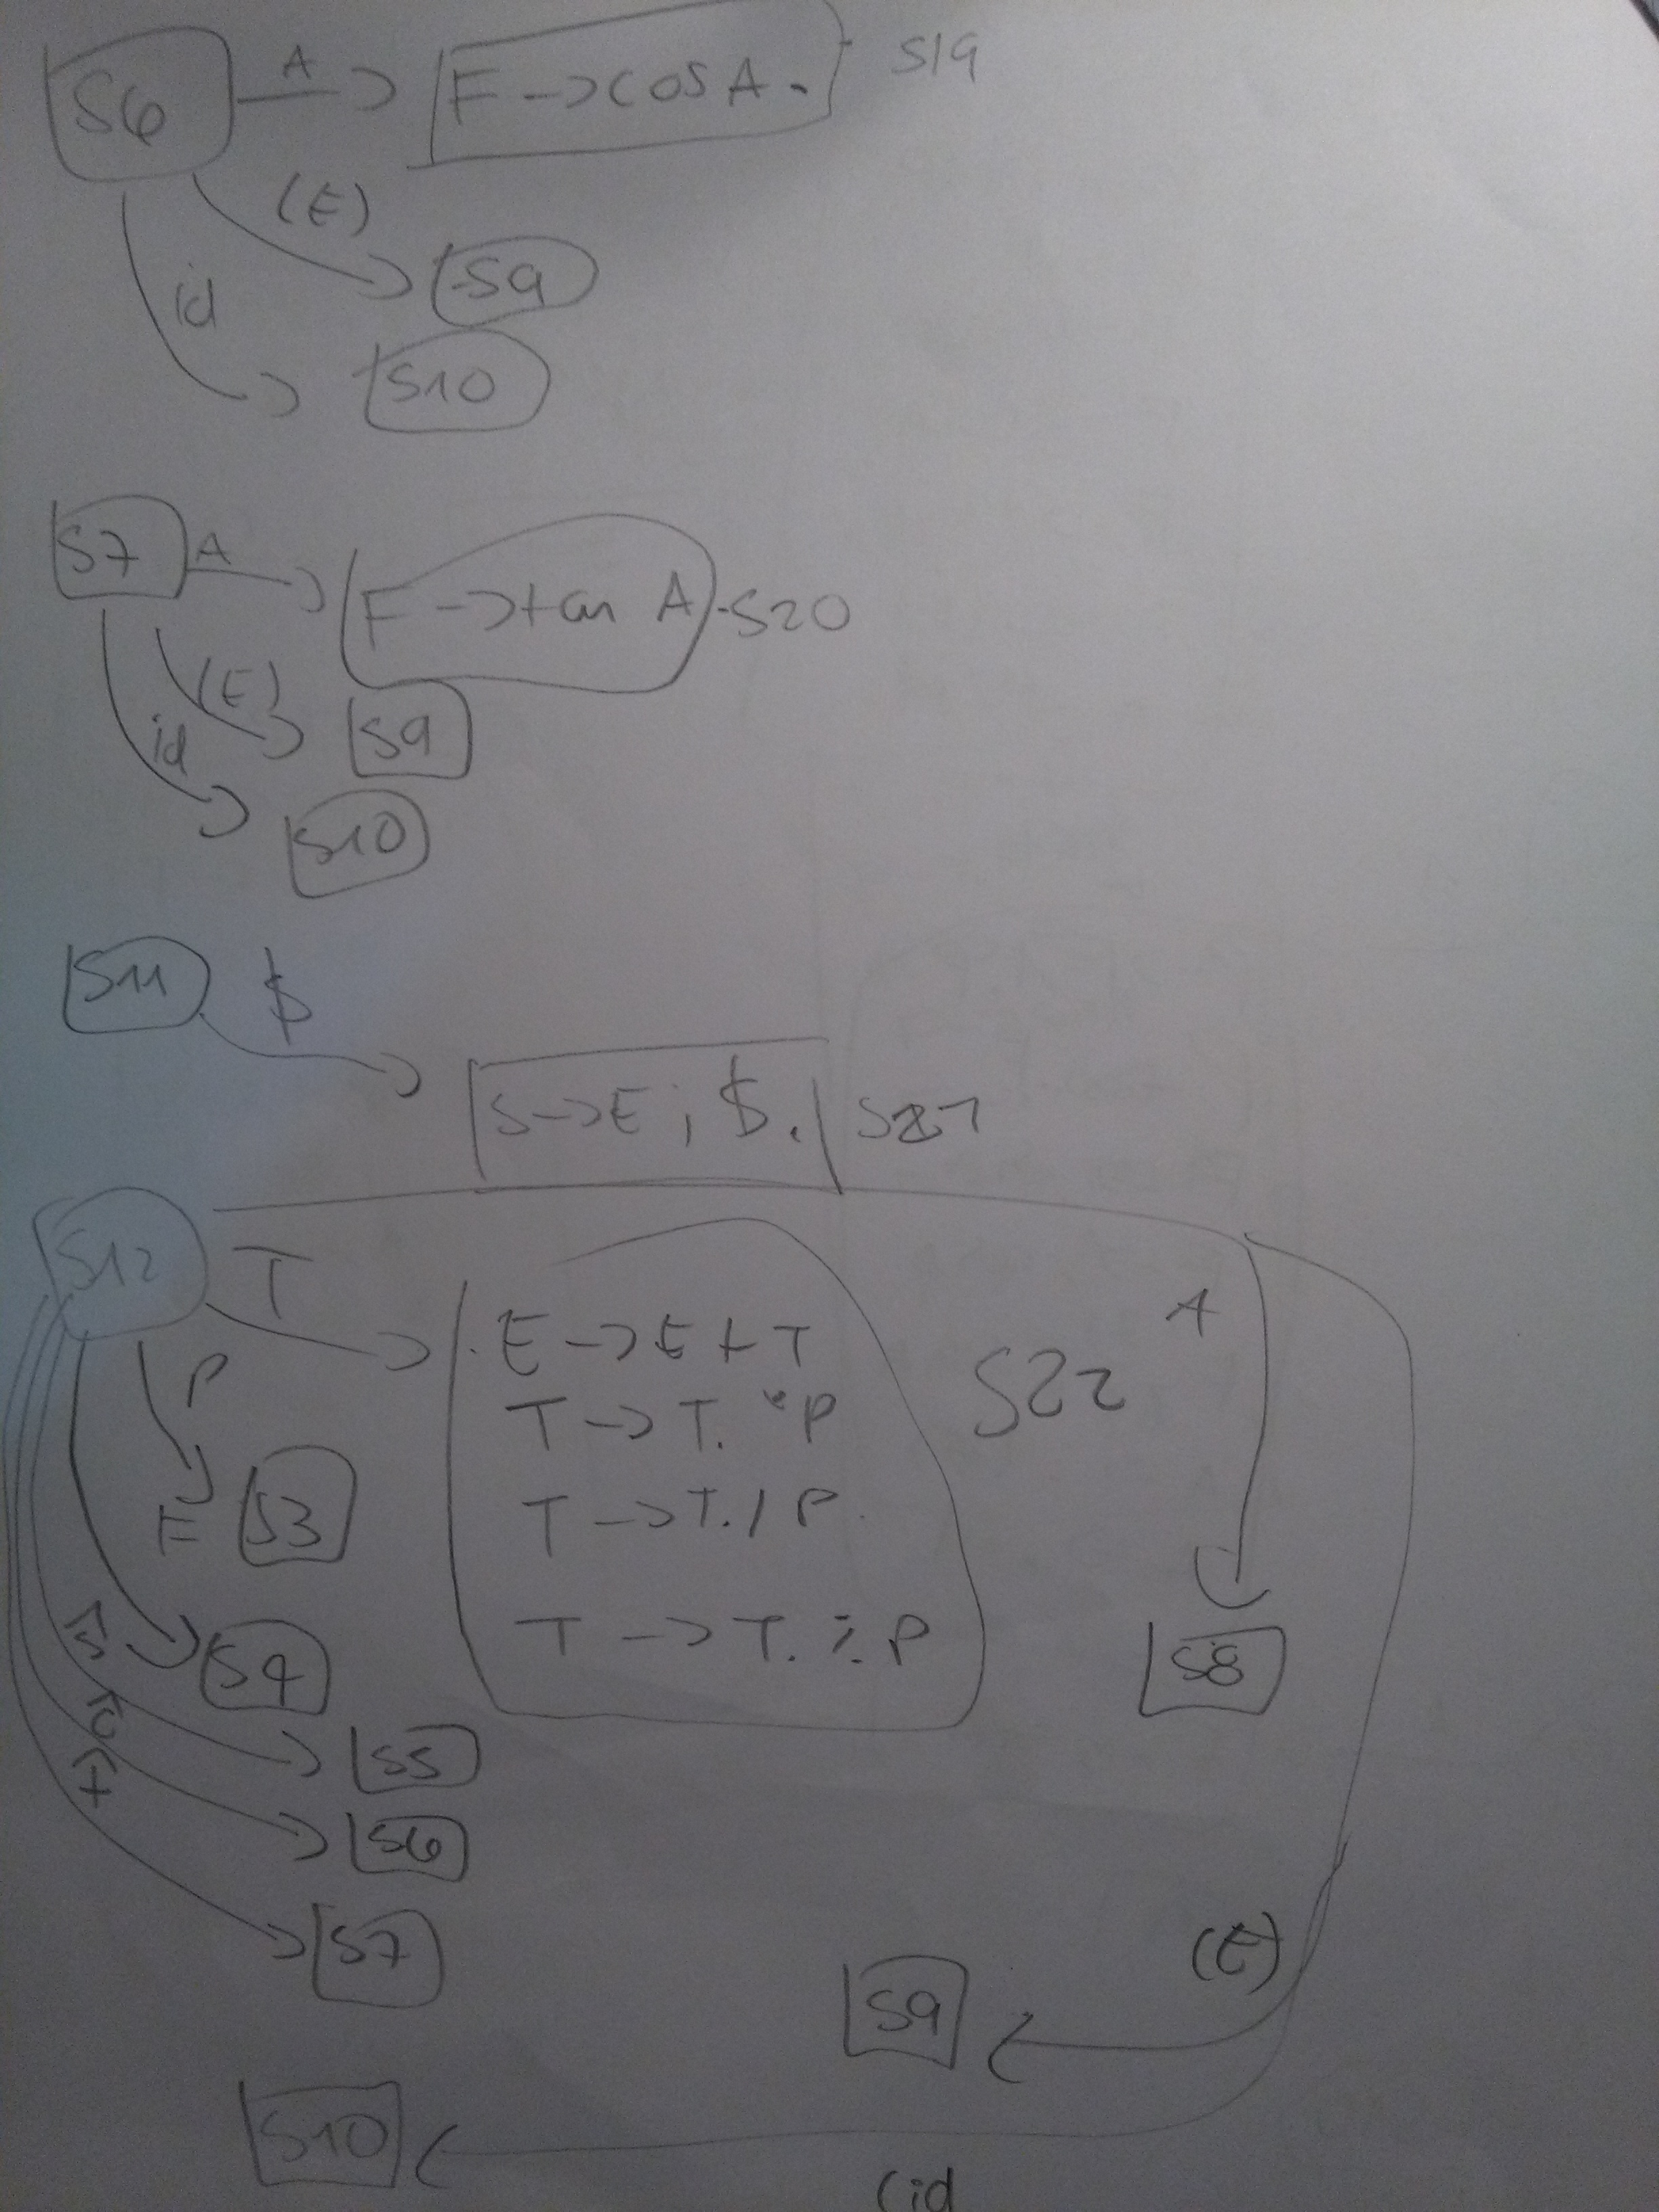 S6 A F → cos A . S19
(E)
S9
id
S10
S7 A F → tan A S20
(E)
S9
id
S10
S11 $
S → E ; $ .
S12 T A
E → E + T S22
T → T. * P
P
T → T. / P
F S3
T → T. % P
S4 S8
S5
S6
S7
(E)
S9
S10
(id